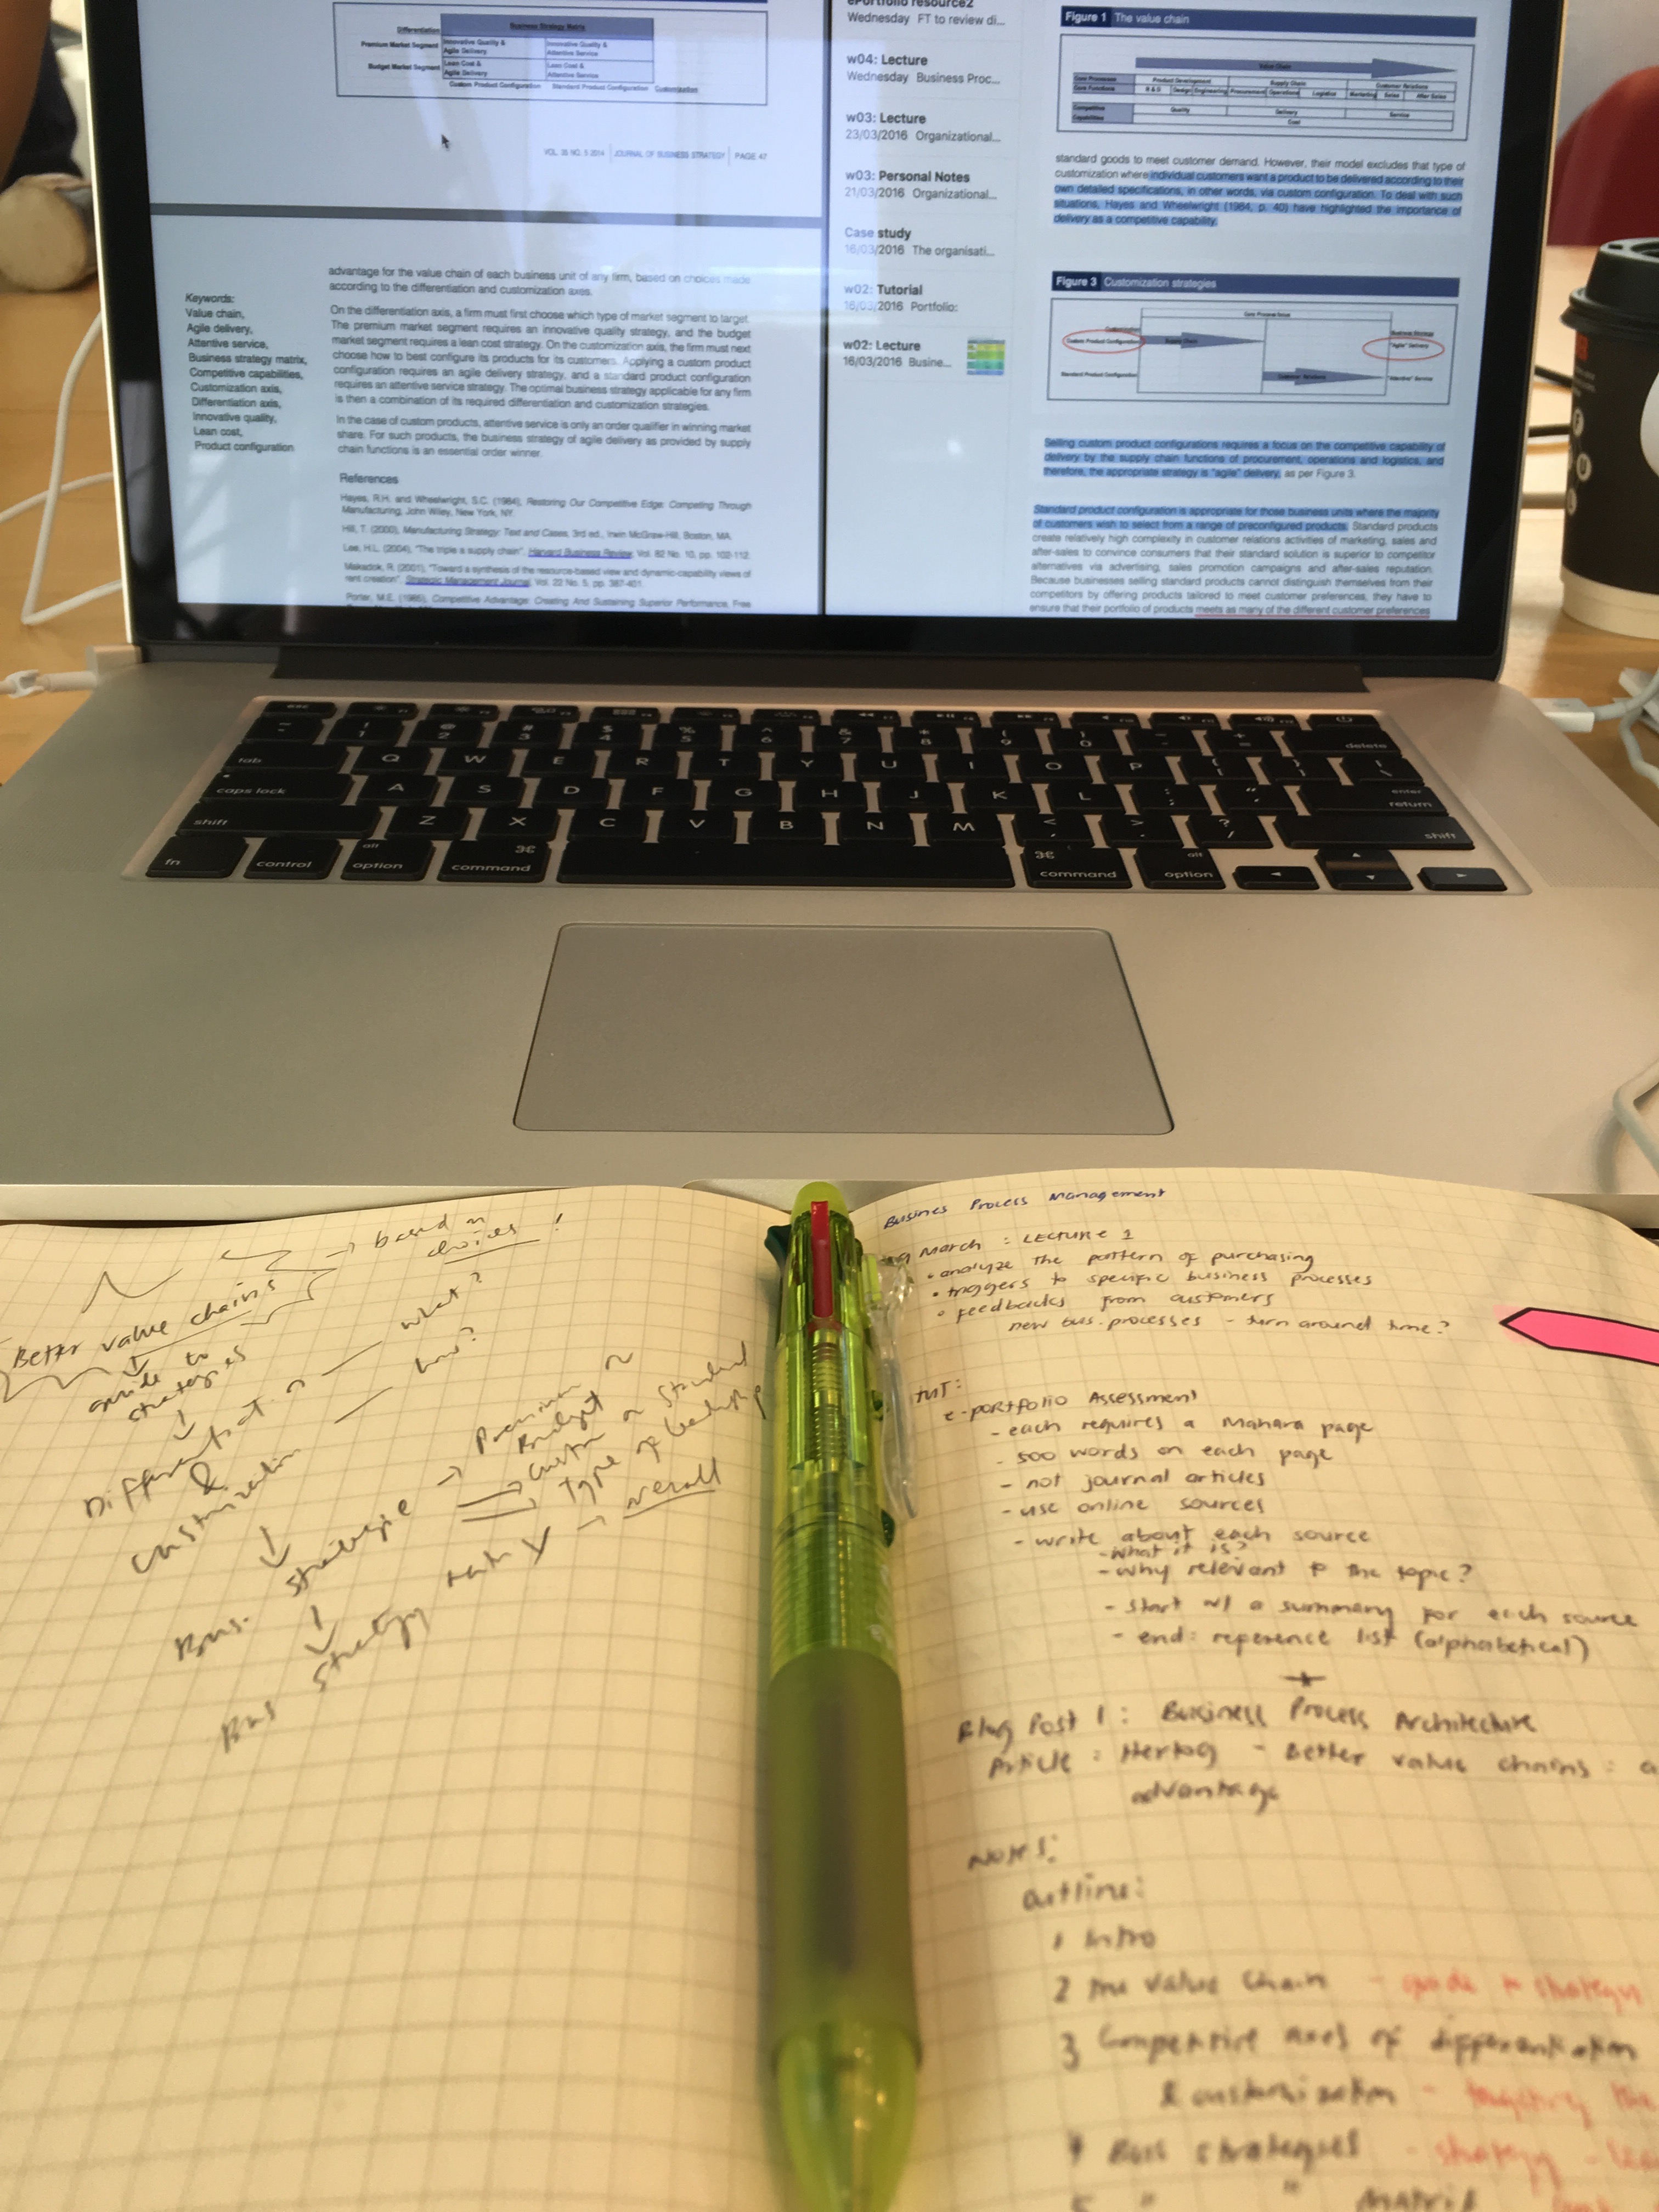 Differentiation
Business Strategy Matrix
Premium Market Segment
Innovative Quality &
Agile Delivery
Innovative Quality &
Attentive Service
Budget Market Segment
Lean Cost &
Agile Delivery
Lean Cost &
Attentive Service
Custom Product Configuration
Standard Product Configuration
Customization
VOL. 35 NO. 5 2014 | JOURNAL OF BUSINESS STRATEGY | PAGE 47
Keywords:
Value chain,
Agile delivery,
Attentive service,
Business strategy matrix,
Competitive capabilities,
Customization axis,
Differentiation axis,
Innovative quality,
Lean cost,
Product configuration
advantage for the value chain of each business unit of any firm, based on choices made
according to the differentiation and customization axes.
On the differentiation axis, a firm must first choose which type of market segment to target.
The premium market segment requires an innovative quality strategy, and the budget
market segment requires a lean cost strategy. On the customization axis, the firm must next
choose how to best configure its products for its customers. Applying a custom product
configuration requires an agile delivery strategy, and a standard product configuration
requires an attentive service strategy. The optimal business strategy applicable for any firm
is then a combination of its required differentiation and customization strategies.
In the case of custom products, attentive service is only an order qualifier in winning market
share. For such products, the business strategy of agile delivery as provided by supply
chain functions is an essential order winner.
References
Hayes, R.H. and Wheelwright, S.C. (1984), Restoring Our Competitive Edge: Competing Through
Manufacturing, John Wiley, New York, NY.
Hill, T. (2000), Manufacturing Strategy: Text and Cases, 3rd ed., Irwin McGraw-Hill, Boston, MA.
Lee, H.L. (2004), "The triple a supply chain", Harvard Business Review, Vol. 82 No. 10, pp. 102-112.
Makadok, R. (2001), "Toward a synthesis of the resource-based view and dynamic-capability views of
rent creation", Strategic Management Journal, Vol. 22 No. 5, pp. 387-401.
Porter, M.E. (1985), Competitive Advantage: Creating And Sustaining Superior Performance, Free
ePortfolio resource2
Wednesday FT to review di...
w04: Lecture
Wednesday Business Proc...
w03: Lecture
23/03/2016 Organizational...
w03: Personal Notes
21/03/2016 Organizational...
Case study
16/03/2016 The organisati...
w02: Tutorial
16/03/2016 Portfolio:
w02: Lecture
16/03/2016 Busine...
Figure 1 The value chain
Value Chain
Core Processes
Product Development
Supply Chain
Customer Relations
Core Functions
R & D
Design
Engineering
Procurement
Operations
Logistics
Marketing
Sales
After Sales
Competitive
Capabilities
Quality
Delivery
Service
Cost
standard goods to meet customer demand. However, their model excludes that type of
customization where individual customers want a product to be delivered according to their
own detailed specifications, in other words, via custom configuration. To deal with such
situations, Hayes and Wheelwright (1984, p. 40) have highlighted the importance of
delivery as a competitive capability.
Figure 3 Customization strategies
Core Process focus
Customization
Business Strategy
Custom Product Configuration
Supply Chain
"Agile" Delivery
Standard Product Configuration
Customer Relations
"Attentive" Service
Selling custom product configurations requires a focus on the competitive capability of
delivery by the supply chain functions of procurement, operations and logistics, and
therefore, the appropriate strategy is "agile" delivery, as per Figure 3.
Standard product configuration is appropriate for those business units where the majority
of customers wish to select from a range of preconfigured products. Standard products
create relatively high complexity in customer relations activities of marketing, sales and
after-sales to convince consumers that their standard solution is superior to competitor
alternatives via advertising, sales promotion campaigns and after-sales reputation.
Because businesses selling standard products cannot distinguish themselves from their
competitors by offering products tailored to meet customer preferences, they have to
ensure that their portfolio of products meets as many of the different customer preferences
delete
tab Q W E R T Y U I O P
caps lock A S D F G H J K L enter
return
shift Z X C V B N M shift
fn control alt option command command alt option
based on
choices!
Better value chains
guide to
strategies
what?
how?
&
customization
Premium
Budget
type of leadership
overall
Bus. strategie
Bus strategy
Busines Process Management
March : LECTURE 1
• analyze the pattern of purchasing
• triggers to specific business processes
• feedbacks from customers
new bus. processes - turn around time?
TUT:
e-portfolio Assessment
- each requires a Mahara page
- 500 words on each page
- not journal articles
- use online sources
- write about each source
- what it is?
- why relevant to the topic?
- start w/ a summary for each source
- end: reference list (alphabetical)
Blog Post 1 : Business Process Architecture
Article : Hertog - Better value chains : a
advantage
Notes:
outline:
1 Intro
2 The value chain - guide to strategies
3 Competitive axes of differentiation
& customization - targeting the
4 Bus strategies - strategy -
5 " " Matrix